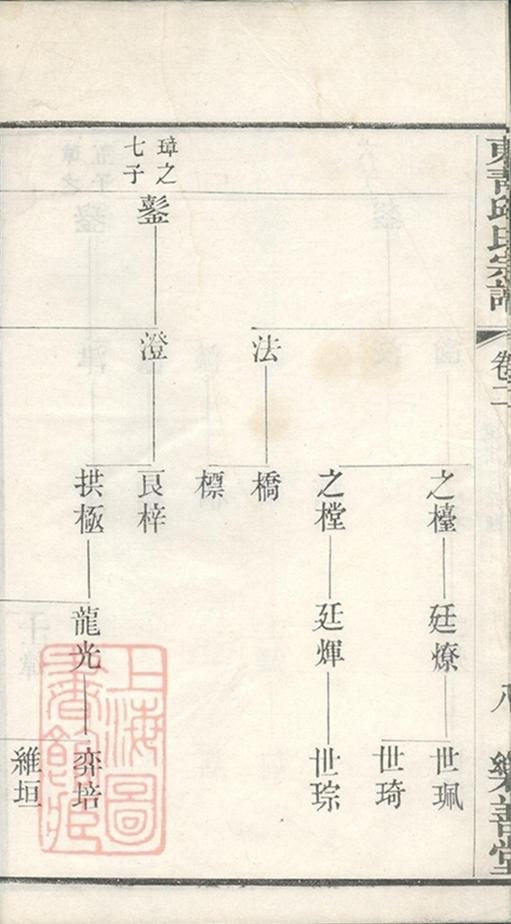 東青邱氏宗譜
卷二
八
樂善堂
之檯
廷燎
世珮
世琦
之樘
廷煇
世琮
法
橋
標
璋之
七子
鏊
澄
良梓
拱極
龍光
弈培
維垣
上海圖
書館藏